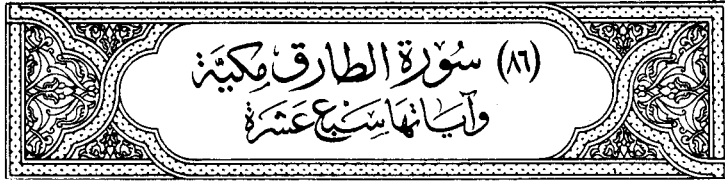 (٨٦) سُوْرَةِ الطارِق مكيَّة
وَآيَاتهَا سَبْع عَشَرَة